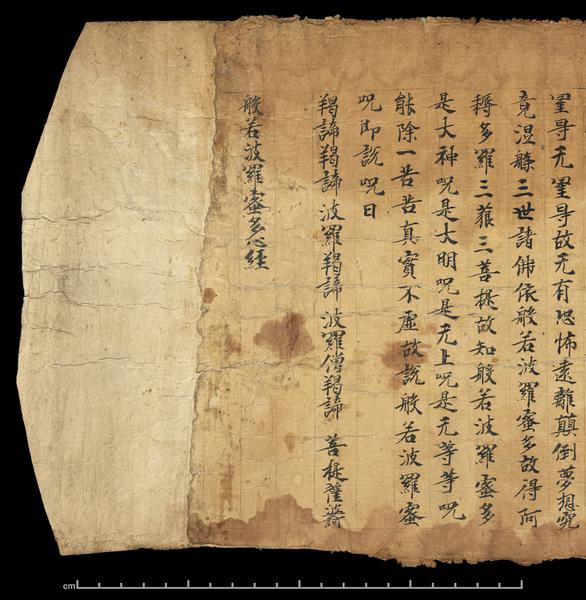 罣㝵无罣㝵故无有恐怖遠離顛倒夢想究
竟涅槃三世諸佛依般若波羅蜜多故得阿
耨多羅三藐三菩提故知般若波羅蜜多
是大神呪是大明呪是无上呪是无等等呪
能除一苦苦真實不虛故說般若波羅蜜
呪即說呪曰
羯諦羯諦 波羅羯諦 波羅僧羯諦 菩提薩
般若波羅蜜多心經
cm